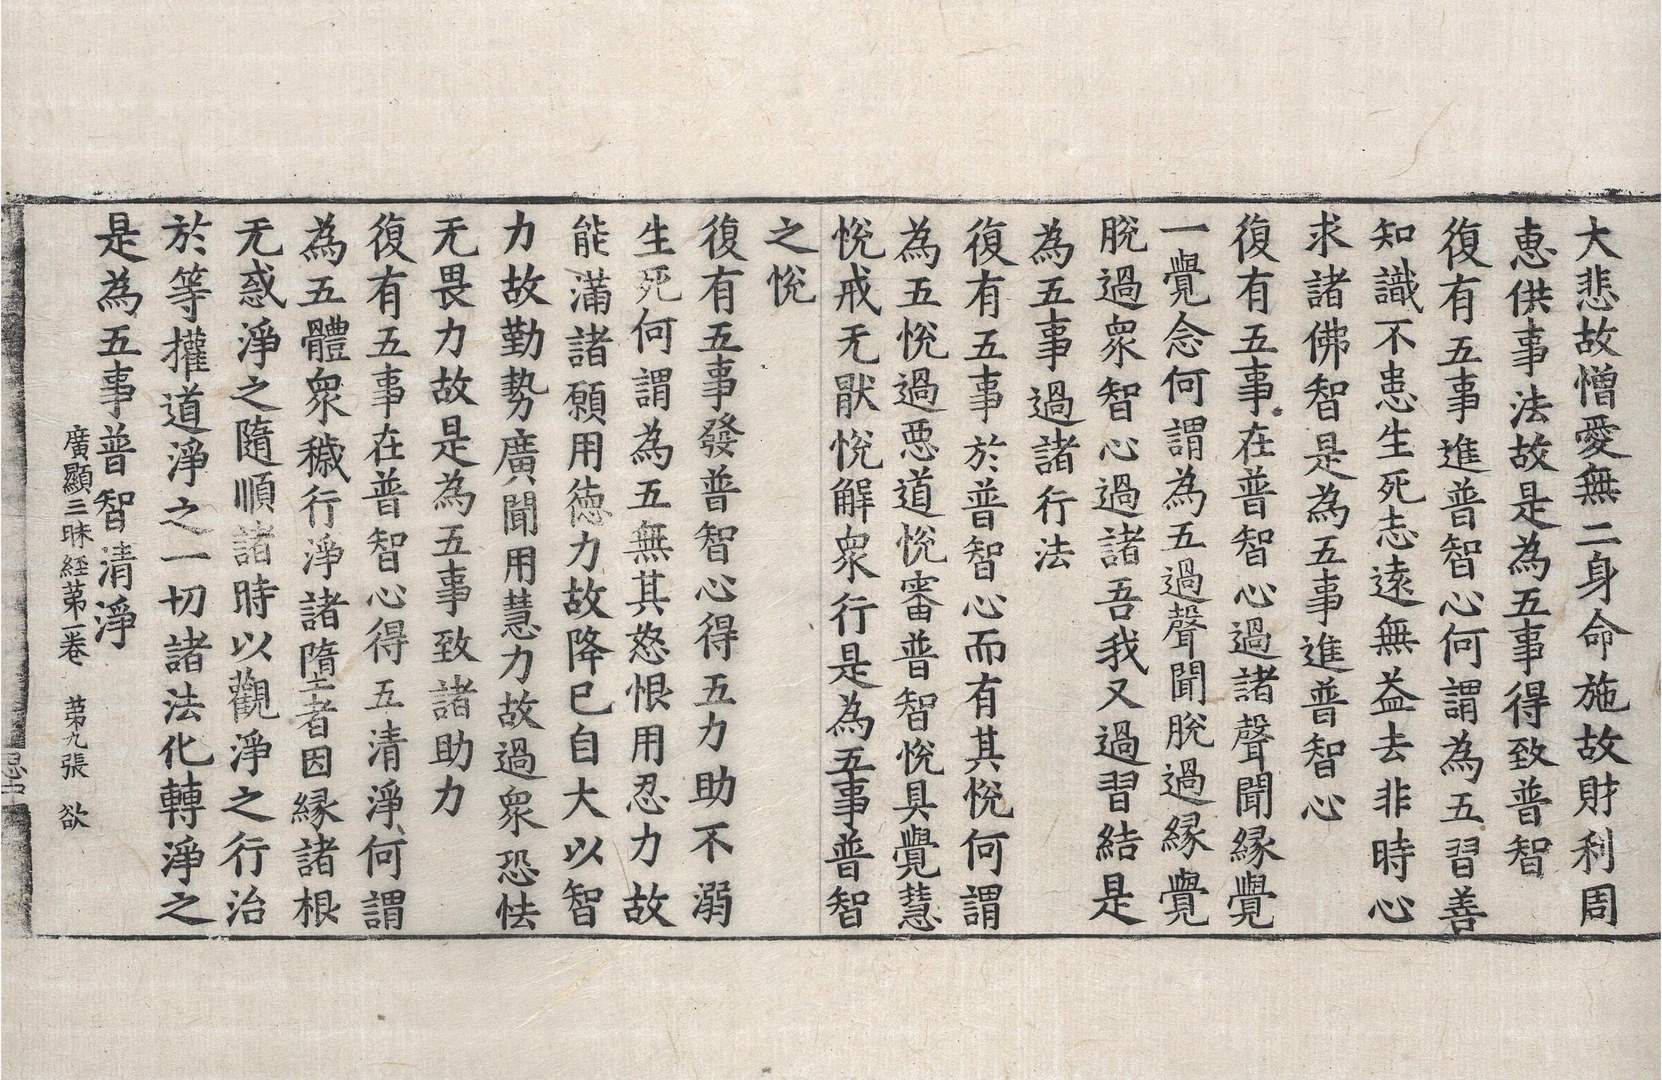 大悲故憎愛無二身命施故財利周
恵供事法故是為五事得致普智
復有五事進普智心何謂為五習善
知識不恚生死志志遠無益去非時心
求諸佛智是為五事進普智心
復有五事在普智心過諸聲聞緣覺
一覺念何謂為五過聲聞脫過緣覺
脫過衆智心過諸吾我又過習結是
為五事過諸行法
復有五事於普智心而有其悅何謂
為五悅過惡道悅審普智悅具覺慧
悅戒无猒悅解衆行是為五事普智
之悅
復有五事發普智心得五力助不溺
生死何謂為五無其怒恨用忍力故
能滿諸願用德力故降已自大以智
力故勤勢廣聞用慧力故過衆恐怯
无畏力故是為五事致諸助力
復有五事在普智心得五清淨何謂
為五體衆穢行淨諸墮者因緣諸根
无惑淨之隨順諸時以觀淨之行治
於等權道淨之一切諸法化轉淨之
是為五事普智清淨
廣顯三昧經苐一卷 苐九張 欲